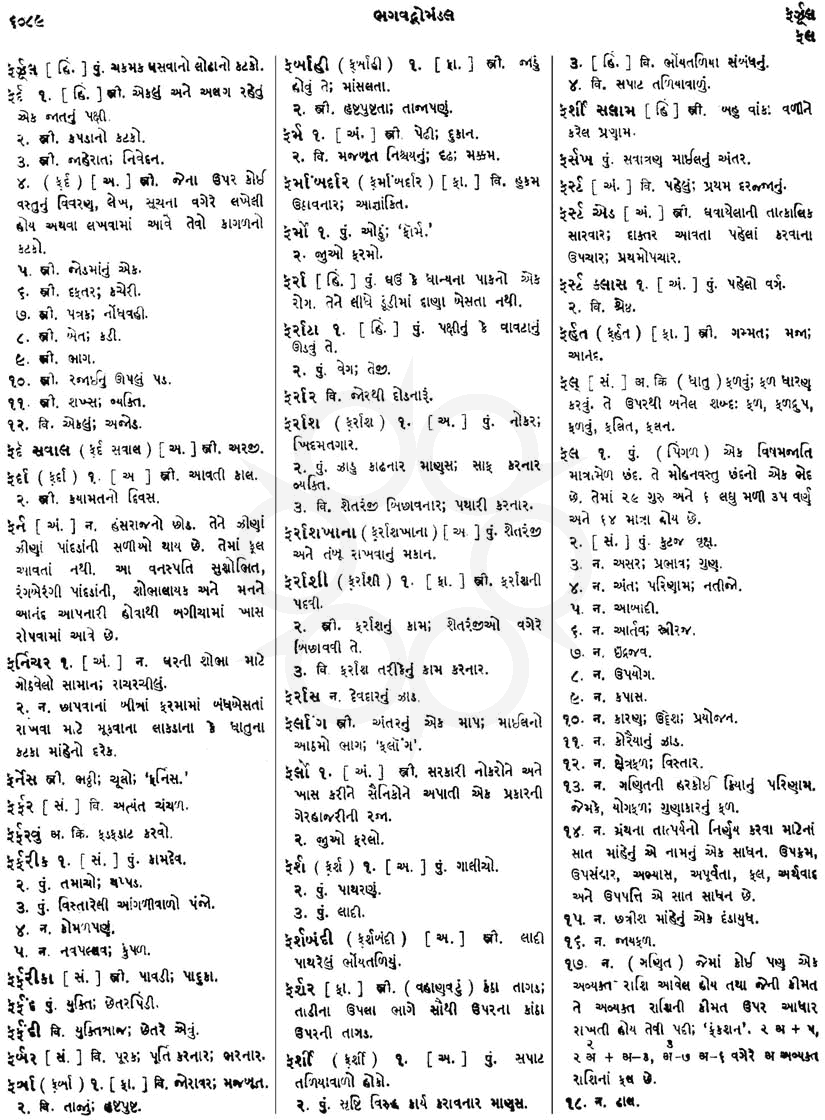 ૬૦૮૯
ભગવદ્ગોમંડલ
ફર્ઝૂલ
ફલ
ફર્ઝૂલ [ હિં. ] પું. ચકમક ઘસવાનો લોઢાનો કટકો.
ફર્દ ૧. [ હિં. ] સ્ત્રી. એકલું અને અલગ રહેતું
એક જાતનું પક્ષી.
૨. સ્ત્રી. કપડાનો કટકો.
૩. સ્ત્રી. જાહેરાત; નિવેદન.
૪. ( ફર્દ ) [ અ. ] સ્ત્રી. જેના ઉપર કોઈ
વસ્તુનું વિવરણ, લેખ, સૂચના વગેરે લખેલી
હોય અથવા લખવામાં આવે તેવો કાગળનો
કટકો.
૫. સ્ત્રી. જોડમાંનું એક.
૬. સ્ત્રી. દફતર; કચેરી.
૭. સ્ત્રી. પત્રક; નોંધવહી.
૮. સ્ત્રી. બેત; કડી.
૯. સ્ત્રી. ભાગ.
૧૦. સ્ત્રી. રજાઈનું ઊપલું પડ.
૧૧. સ્ત્રી. શખ્સ; વ્યક્તિ.
૧૨. વિ. એકલું; અજોડ.
ફર્દ સવાલ ( ફર્દ સવાલ ) [ અ. ] સ્ત્રી. અરજી.
ફર્દા ( ફર્દા ) ૧. [ અ ] સ્ત્રી. આવતી કાલ.
૨. સ્ત્રી. કયામતનો દિવસ.
ફર્ન [ અં. ] ન. હંસરાજનો છોડ. તેને ઝીણાં
ઝીણાં પાંદડાંની સળીઓ થાય છે. તેમાં ફૂલ
આવતાં નથી. આ વનસ્પતિ સુશોભિત,
રંગબેરંગી પાંદડાંની, શોભાલાયક અને મનને
આનંદ આપનારી હોવાથી બગીચામાં ખાસ
રોપવામાં આવે છે.
ફર્નિચર ૧. [ અં. ] ન. ઘરની શોભા માટે
ગોઠવેલો સામાન; રાચરચીલું.
૨. ન. છાપવાનાં બીબાં ફરમામાં બંધબેસતાં
રાખવા માટે મૂકવાના લાકડાના કે ધાતુના
કટકા માંહેનો દરેક.
ફર્નેસ સ્ત્રી. ભટ્ઠી; ચૂલો; ‘ફર્નિસ.’
ફર્ફર [ સં. ] વિ. અત્યંત ચંચળ.
ફર્ફરવું અ. ક્રિ. ફડફડાટ કરવો.
ફર્ફરીક ૧. [ સં. ] પું. કામદેવ.
૨. પું. તમાચો; થપ્પડ.
૩. પું. વિસ્તારેલી આંગળીવાળો પંજો.
૪. ન. કોમળપણું.
૫. ન. નવપલ્લવ; કુંપળ.
ફર્ફરીકા [ સં. ] સ્ત્રી. પાવડી; પાદુકા.
ફર્ફંદ પું. યુક્તિ; છેતરપિંડી.
ફર્ફંદી વિ. યુક્તિબાજ; છેતરે એવું.
ફર્બર [ સં. ] વિ. પૂરક; પૂર્તિ કરનાર; ભરનાર.
ફર્બા ( ફર્બા ) ૧. [ ફા. ] વિ. જોરાવર; મજબૂત.
૨. વિ. તાજું; હૃષ્ટપુષ્ટ.
ફર્બાહી ( ફર્બાહી ) ૧. [ ફા. ] સ્ત્રી. જાડું
હોવું તે; માંસલતા.
૨. સ્ત્રી. હૃષ્ટપુષ્ટતા; તાજાપણું.
ફર્મ ૧. [ અં. ] સ્ત્રી. પેઢી; દુકાન.
૨. વિ. મજબૂત નિશ્ચયનું; દૃઢ; મક્કમ.
ફર્માંબર્દાર ( ફર્માંબર્દાર ) [ ફા. ] વિ. હુકમ
ઉઠાવનાર; આજ્ઞાંકિત.
ફર્મો ૧. પું. ઓઠું; ‘ફૉર્મ.’
૨. જુઓ ફરમો.
ફર્રા [ હિં. ] પું. ઘઉં કે ધાન્યના પાકનો એક
રોગ. તેને લીધે ડૂંડીમાં દાણા બેસતા નથી.
ફર્રાટા ૧. [ હિં. ] પું. પક્ષીનું કે વાવટાનું
ઊડવું તે.
૨. પું. વેગ; તેજી.
ફર્રાર વિ. જોરથી દોડનારૂં.
ફર્રાશ ( ફર્રાશ ) ૧. [ અ. ] પું. નોકર;
ખિદમતગાર.
૨. પું. ઝાડુ કાઢનાર માણસ; સાફ કરનાર
વ્યક્તિ.
૩. વિ. શેતરંજી બિછાવનાર; પથારી કરનાર.
ફર્રાશખાના ( ફર્રાશખાના ) [ અ ] પું. શેતરંજી
અને તંબૂ રાખવાનું મકાન.
ફર્રાશી ( ફર્રાશી ) ૧. [ ફા. ] સ્ત્રી. ફર્રાશની
પદવી.
૨. સ્ત્રી. ફર્રાશનું કામ; શેતરંજીઓ વગેરે
બિછાવવી તે.
૩. વિ ફર્રાશ તરીકેનું કામ કરનાર.
ફર્રાસ ન. દેવદારનું ઝાડ.
ફર્લાંગ સ્ત્રી. અંતરનું એક માપ; માઈલનો
આઠમો ભાગ; ‘ફર્લૉંગ’.
ફર્લો ૧. [ અં. ] સ્ત્રી. સરકારી નોકરોને અને
ખાસ કરીને સૈનિકોને અપાતી એક પ્રકારની
ગેરહાજરીની રજા.
૨. જુઓ ફરલો.
ફર્શ ( ફર્શ ) ૧. [ અ. ] પું. ગાલીચો.
૨. પું. પાથરણું.
૩. પું. લાદી.
ફર્શબંદી ( ફર્શબંદી ) [ અ. ] સ્ત્રી. લાદી
પાથરેલું ભોંયતળિયું.
ફર્શર [ ફા. ] સ્ત્રી. ( વહાણવટું ) કંઠા તાગડ;
તાડીના ઉપલા ભાગે સૌથી ઉપરના કાંઠા
ઉપરની તાગડ.
ફર્શી ( ફર્શી ) ૧. [ અ. ] પું. સપાટ
તળિયાવાળો હોકો.
૨. પું. સૃષ્ટિ વિરુદ્ધ કાર્ય કરાવનાર માણસ.
૩. [ હિં. ] વિ. ભોંયતળિયા સંબંધનું.
૪. વિ. સપાટ તળિયાવાળું.
ફર્શી સલામ [ હિં ] સ્ત્રી. બહુ વાંકા વળીને
કરેલ પ્રણામ.
ફર્સખ પું. સવાત્રણ માઈલનું અંતર.
ફર્સ્ટ [ અં. ] વિ. પહેલું; પ્રથમ દરજ્જાનું.
ફર્સ્ટ એડ [ અં. ] સ્ત્રી. ઘવાયેલાની તાત્કાલિક
સારવાર; દાક્તર આવતા પહેલાં કરવાના
ઉપચાર; પ્રથમોપચાર.
ફર્સ્ટ ક્લાસ ૧. [ અં. ] પું. પહેલો વર્ગ.
૨. વિ. શ્રેષ્ઠ.
ફર્હત ( ફર્હત ) [ ફા. ] સ્ત્રી. ગમ્મત; મજા;
આનંદ.
ફલ્ [ સં. ] અ. ક્રિ ( ધાતુ ) ફળવું; ફળ ધારણ
કરવું. તે ઉપરથી બનેલ શબ્દઃ ફળ, ફળદ્રુપ,
ફળવું, ફલિત, ફલન.
ફલ ૧. પું. ( પિંગળ ) એક વિષમજાતિ
માત્રામેળ છંદ. તે મોહનવસ્તુ છંદનો એક ભેદ
છે. તેમાં ૨૯ ગુરુ અને ૬ લઘુ મળી ૩૫ વર્ણ
અને ૬૪ માત્રા હોય છે.
૨. [ સં. ] પું. કુટજ વૃક્ષ.
૩. ન. અસર; પ્રભાવ; ગુણ.
૪. ન. અંત; પરિણામ; નતીજો.
૫. ન. આબાદી.
૬. ન. આર્તવ; સ્ત્રીરજ.
૭. ન. ઇંદ્રજવ.
૮. ન. ઉપયોગ.
૯. ન. કપાસ.
૧૦. ન. કારણ; ઉદ્દેશ; પ્રયોજન.
૧૧. ન. કોરૈયાનું ઝાડ.
૧૨. ન. ક્ષેત્રફળ; વિસ્તાર.
૧૩. ન. ગણિતની હરકોઈ ક્રિયાનું પરિણામ.
જેમકે, યોગફળ; ગુણાકારનું ફળ.
૧૪. ન. ગ્રંથના તાત્પર્યનો નિર્ણય કરવા માટેનાં
સાત માંહેનું એ નામનું એક સાધન. ઉપક્રમ,
ઉપસંહાર, અભ્યાસ, અપૂર્વતા, ફલ, અર્થવાદ
અને ઉપપત્તિ એ સાત સાધન છે.
૧૫. ન. છત્રીશ માંહેનું એક દંડાયુધ.
૧૬. ન. જાયફળ.
૧૭. ન. ( ગણિત ) જેમાં કોઈ પણ એક
અવ્યક્ત રાશિ આવેલ હોય તથા જેની કીંમત
તે અવ્યક્ત રાશિની કીંમત ઉપર આધાર
રાખતી હોય તેવી પદી; ‘ફંકશન’. ૨ અ + ૫,
૨ અ૨ + અ-૩, અ૩-૭ અ-૬ વગેરે અ અવ્યક્ત
રાશિનાં ફલ છે.
૧૮. ન. ઢાલ.